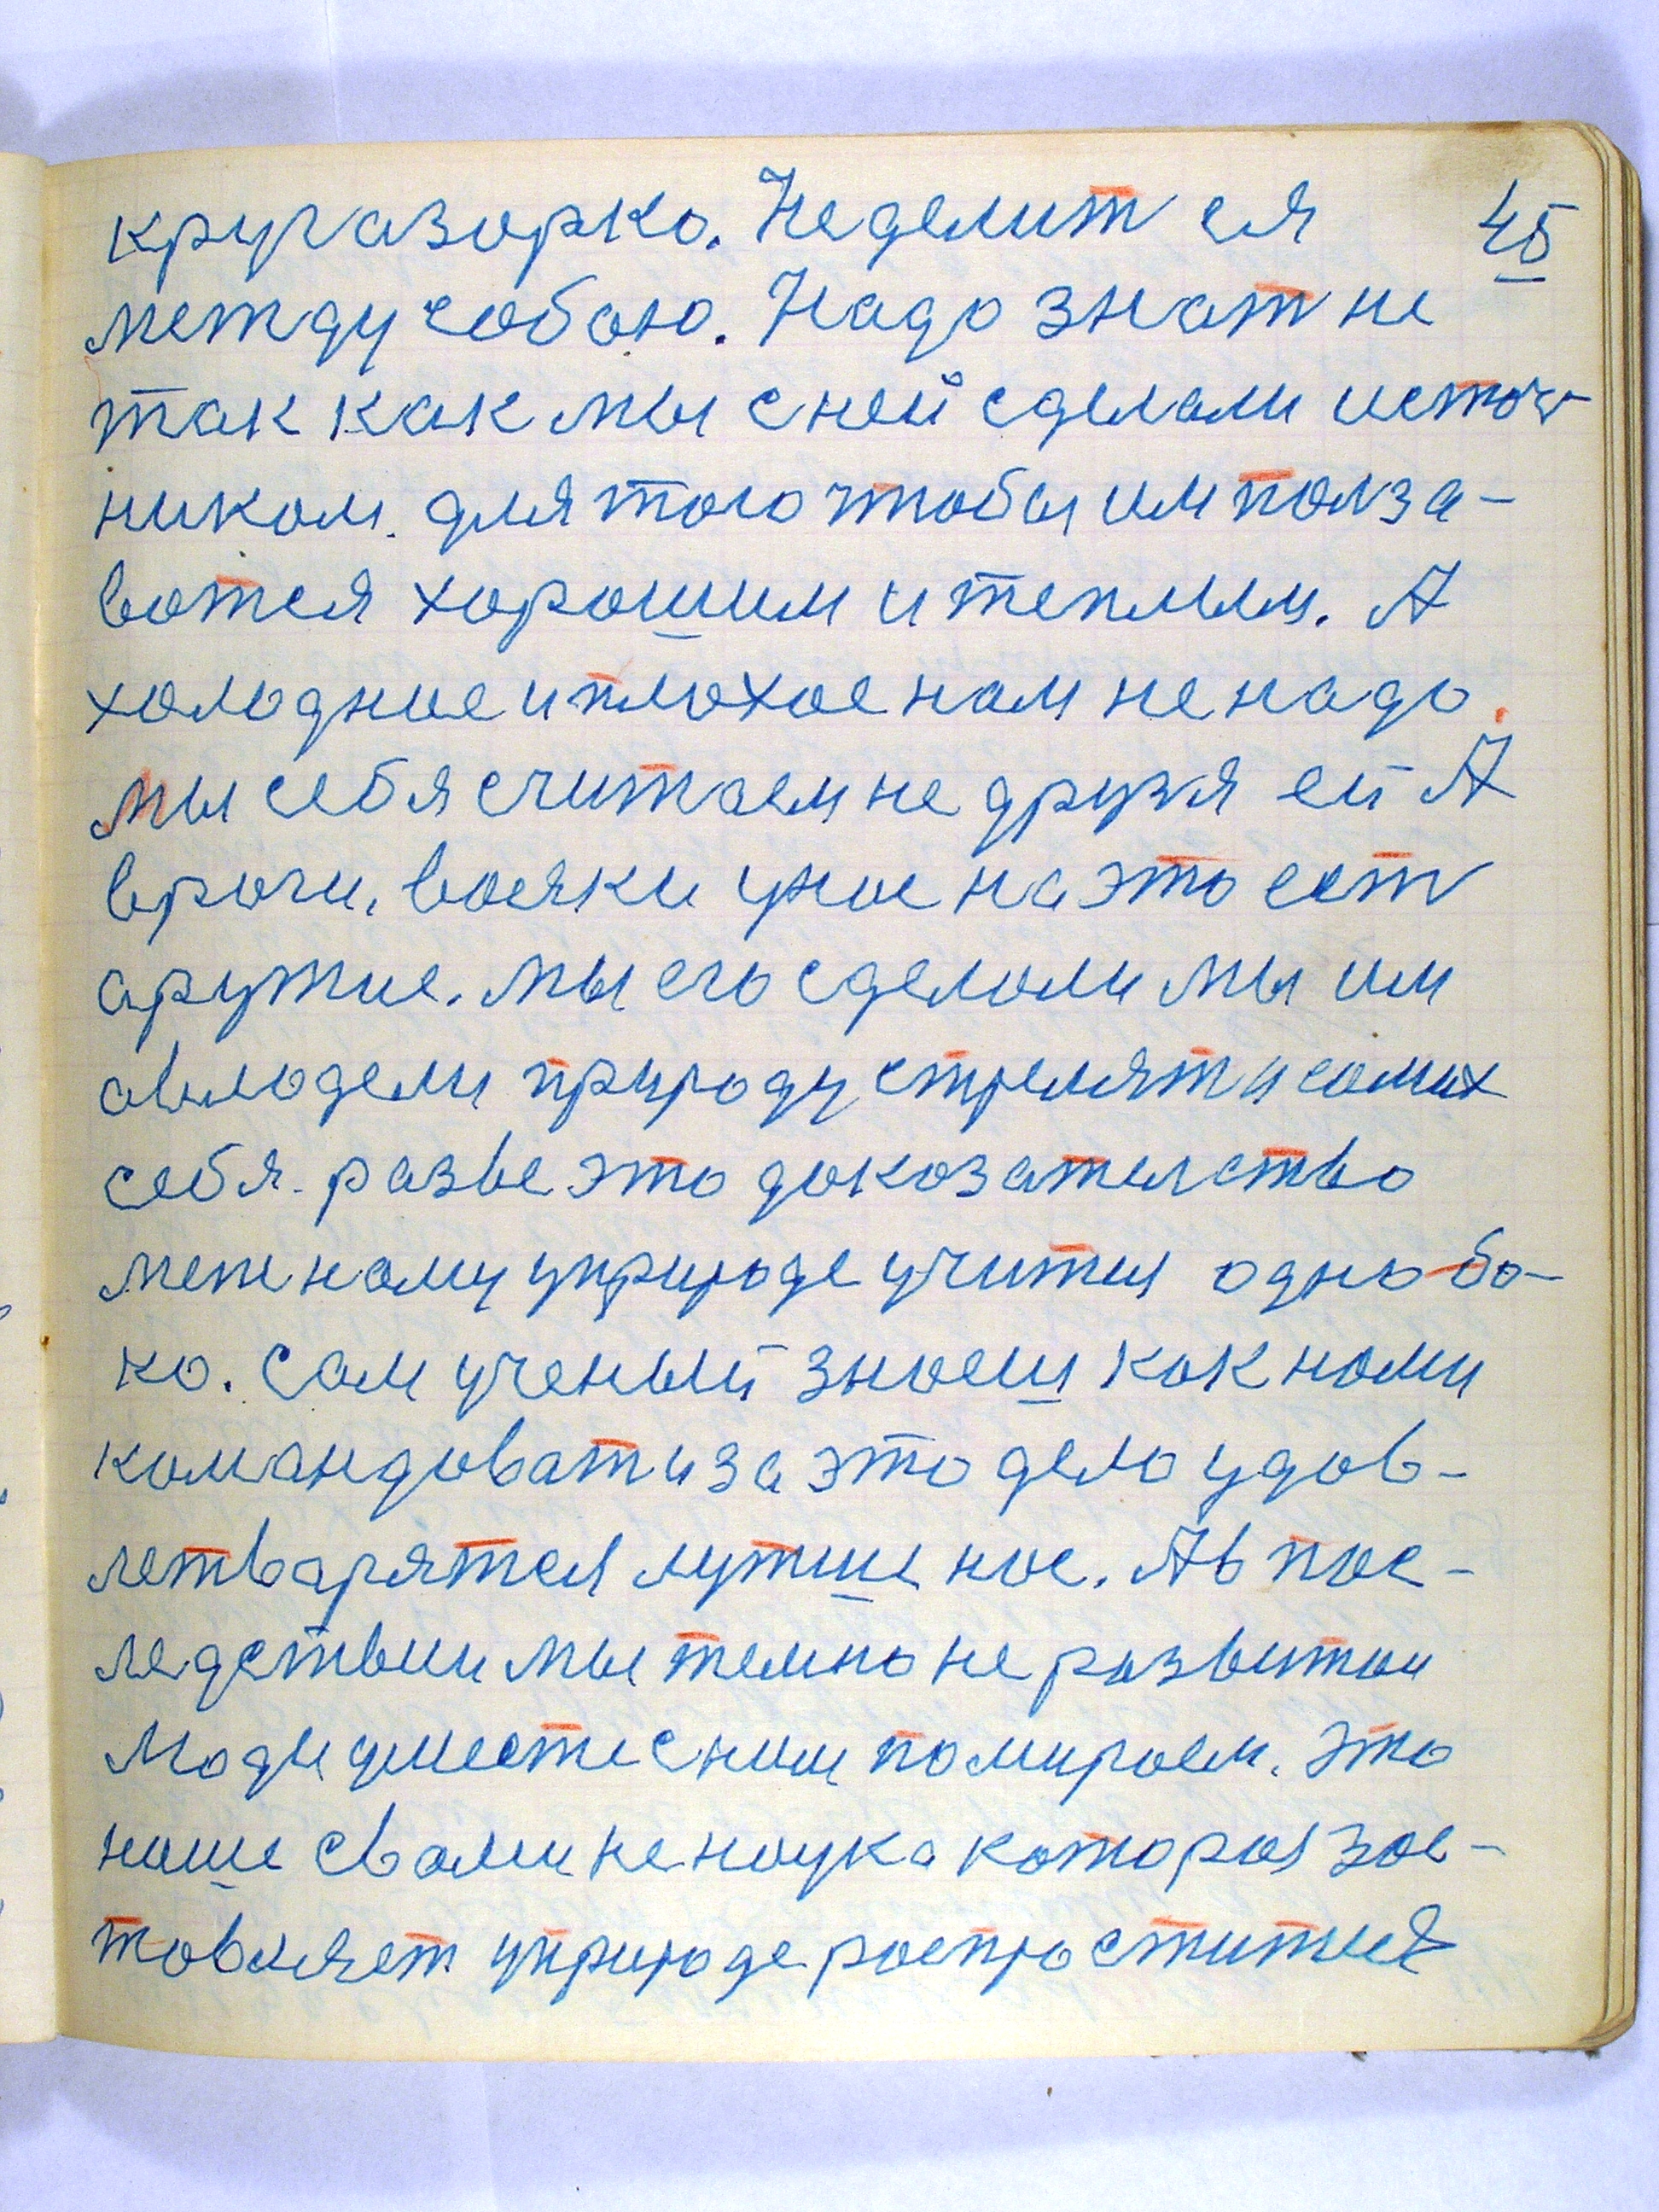 кругазорко. Неделит ся 45
между собою. Надо знат не
так как мы с ней сделали источ-
ником. для того чтобы им полза-
ватся хорошим и теплым. А
холодное и плохое нам не надо.
мы себя считаем не друзя ей А
враги, всяки у нас на это ест
аружие. мы его сделали мы им
овлодели природу стрелят и самих
себя. разве это доказателство
между нами у природе учится одно бо-
ко. Сам ученый знаеш как нами
командоват и за это дело удов-
летварятся лутше нас. А в пос-
ледствии мы темно не развитои
люди умести с ним помираем. это
наше с вами не наука которая зас-
товляет у природе распроститися